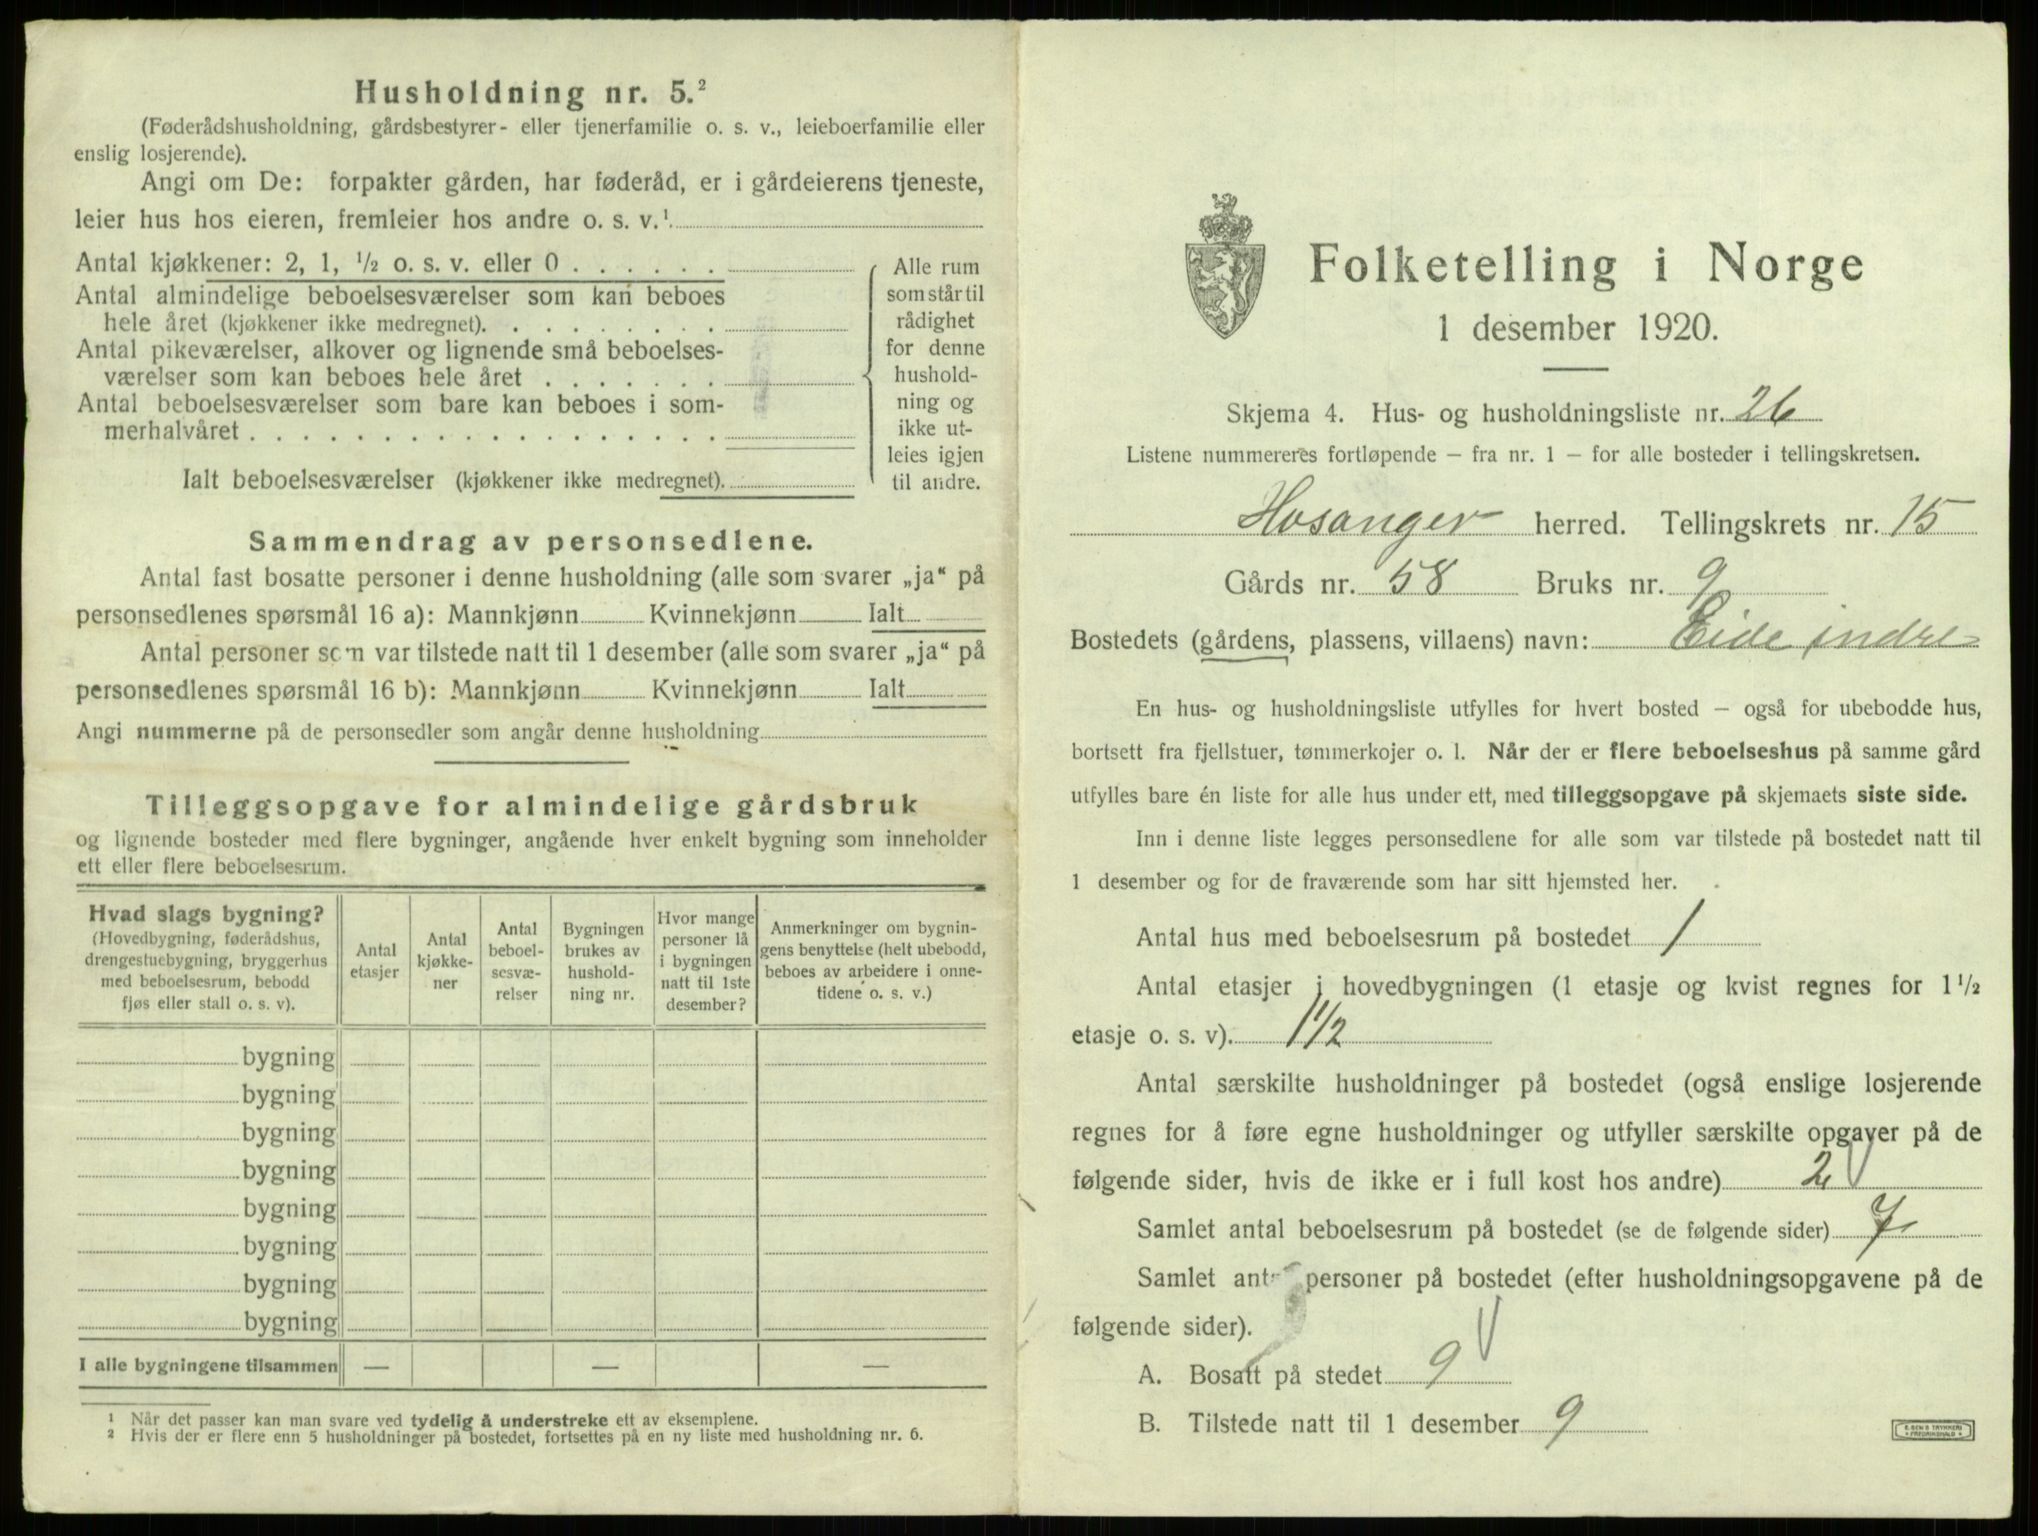 Husholdning nr. 5.²
(Føderådshusholdning, gårdsbestyrer- eller tjenerfamilie o. s. v., leieboerfamilie eller
enslig losjerende).
Angi om De: forpakter gården, har føderåd, er i gårdeierens tjeneste,
leier hus hos eieren, fremleier hos andre o. s. v.¹
Antal kjøkkener: 2, 1, ½ o. s. v. eller 0
Antal almindelige beboelsesværelser som kan beboes
hele året (kjøkkener ikke medregnet).
Antal pikeværelser, alkover og lignende små beboelses-
værelser som kan beboes hele året
Antal beboelsesværelser som bare kan beboes i som-
merhalvåret
Ialt beboelsesværelser (kjøkkener ikke medregnet).
Alle rum
som står til
rådighet
for denne
hushold-
ning og
ikke ut-
leies igjen
til andre.
Sammendrag av personsedlene.
Antal fast bosatte personer i denne husholdning (alle som svarer „ja“ på
personsedlenes spørsmål 16 a): Mannkjønn Kvinnekjønn Ialt
Antal personer som var tilstede natt til 1 desember (alle som svarer „ja“ på
personsedlenes spørsmål 16 b): Mannkjønn Kvinnekjønn Ialt
Angi nummerne på de personsedler som angår denne husholdning
Tilleggsopgave for almindelige gårdsbruk
og lignende bosteder med flere bygninger, angående hver enkelt bygning som inneholder
ett eller flere beboelsesrum.
Hvad slags bygning?
(Hovedbygning, føderådshus,
drengestuebygning, bryggerhus
med beboelsesrum, bebodd
fjøs eller stall o. s. v).
Antal
etasjer
Antal
kjøkke-
ner
Antal
beboel-
sesvæ-
relser
Bygningen
brukes av
hushold-
ning nr.
Hvor mange
personer lå
i bygningen
natt til 1ste
desember?
Anmerkninger om bygnin-
gens benyttelse (helt ubebodd,
beboes av arbeidere i onne-
tidene o. s. v.)
bygning
bygning
bygning
bygning
bygning
bygning
bygning
bygning
I alle bygningene tilsammen — — —
¹ Når det passer kan man svare ved tydelig å understreke ett av eksemplene.
² Hvis der er flere enn 5 husholdninger på bostedet, fortsettes på en ny liste med husholdning nr. 6.
Folketelling i Norge
1 desember 1920.
Skjema 4. Hus- og husholdningsliste nr. 26
Listene nummereres fortløpende – fra nr. 1 – for alle bosteder i tellingskretsen.
Hosanger herred. Tellingskrets nr. 15
Gårds nr. 58 Bruks nr. 9
Bostedets (gårdens, plassens, villaens) navn: Eide indre
En hus- og husholdningsliste utfylles for hvert bosted – også for ubebodde hus,
bortsett fra fjellstuer, tømmerkojer o. l. Når der er flere beboelseshus på samme gård
utfylles bare én liste for alle hus under ett, med tilleggsopgave på skjemaets siste side.
Inn i denne liste legges personsedlene for alle som var tilstede på bostedet natt til
1 desember og for de fraværende som har sitt hjemsted her.
Antal hus med beboelsesrum på bostedet 1
Antal etasjer i hovedbygningen (1 etasje og kvist regnes for 1½
etasje o. s. v). 1½
Antal særskilte husholdninger på bostedet (også enslige losjerende
regnes for å føre egne husholdninger og utfyller særskilte opgaver på de
følgende sider, hvis de ikke er i full kost hos andre) 2
Samlet antal beboelsesrum på bostedet (se de følgende sider) 7
Samlet antal personer på bostedet (efter husholdningsopgavene på de
følgende sider).
A. Bosatt på stedet 9
B. Tilstede natt til 1 desember 9
E. SEM'S TRYKKERI
FREDRIKSHALD